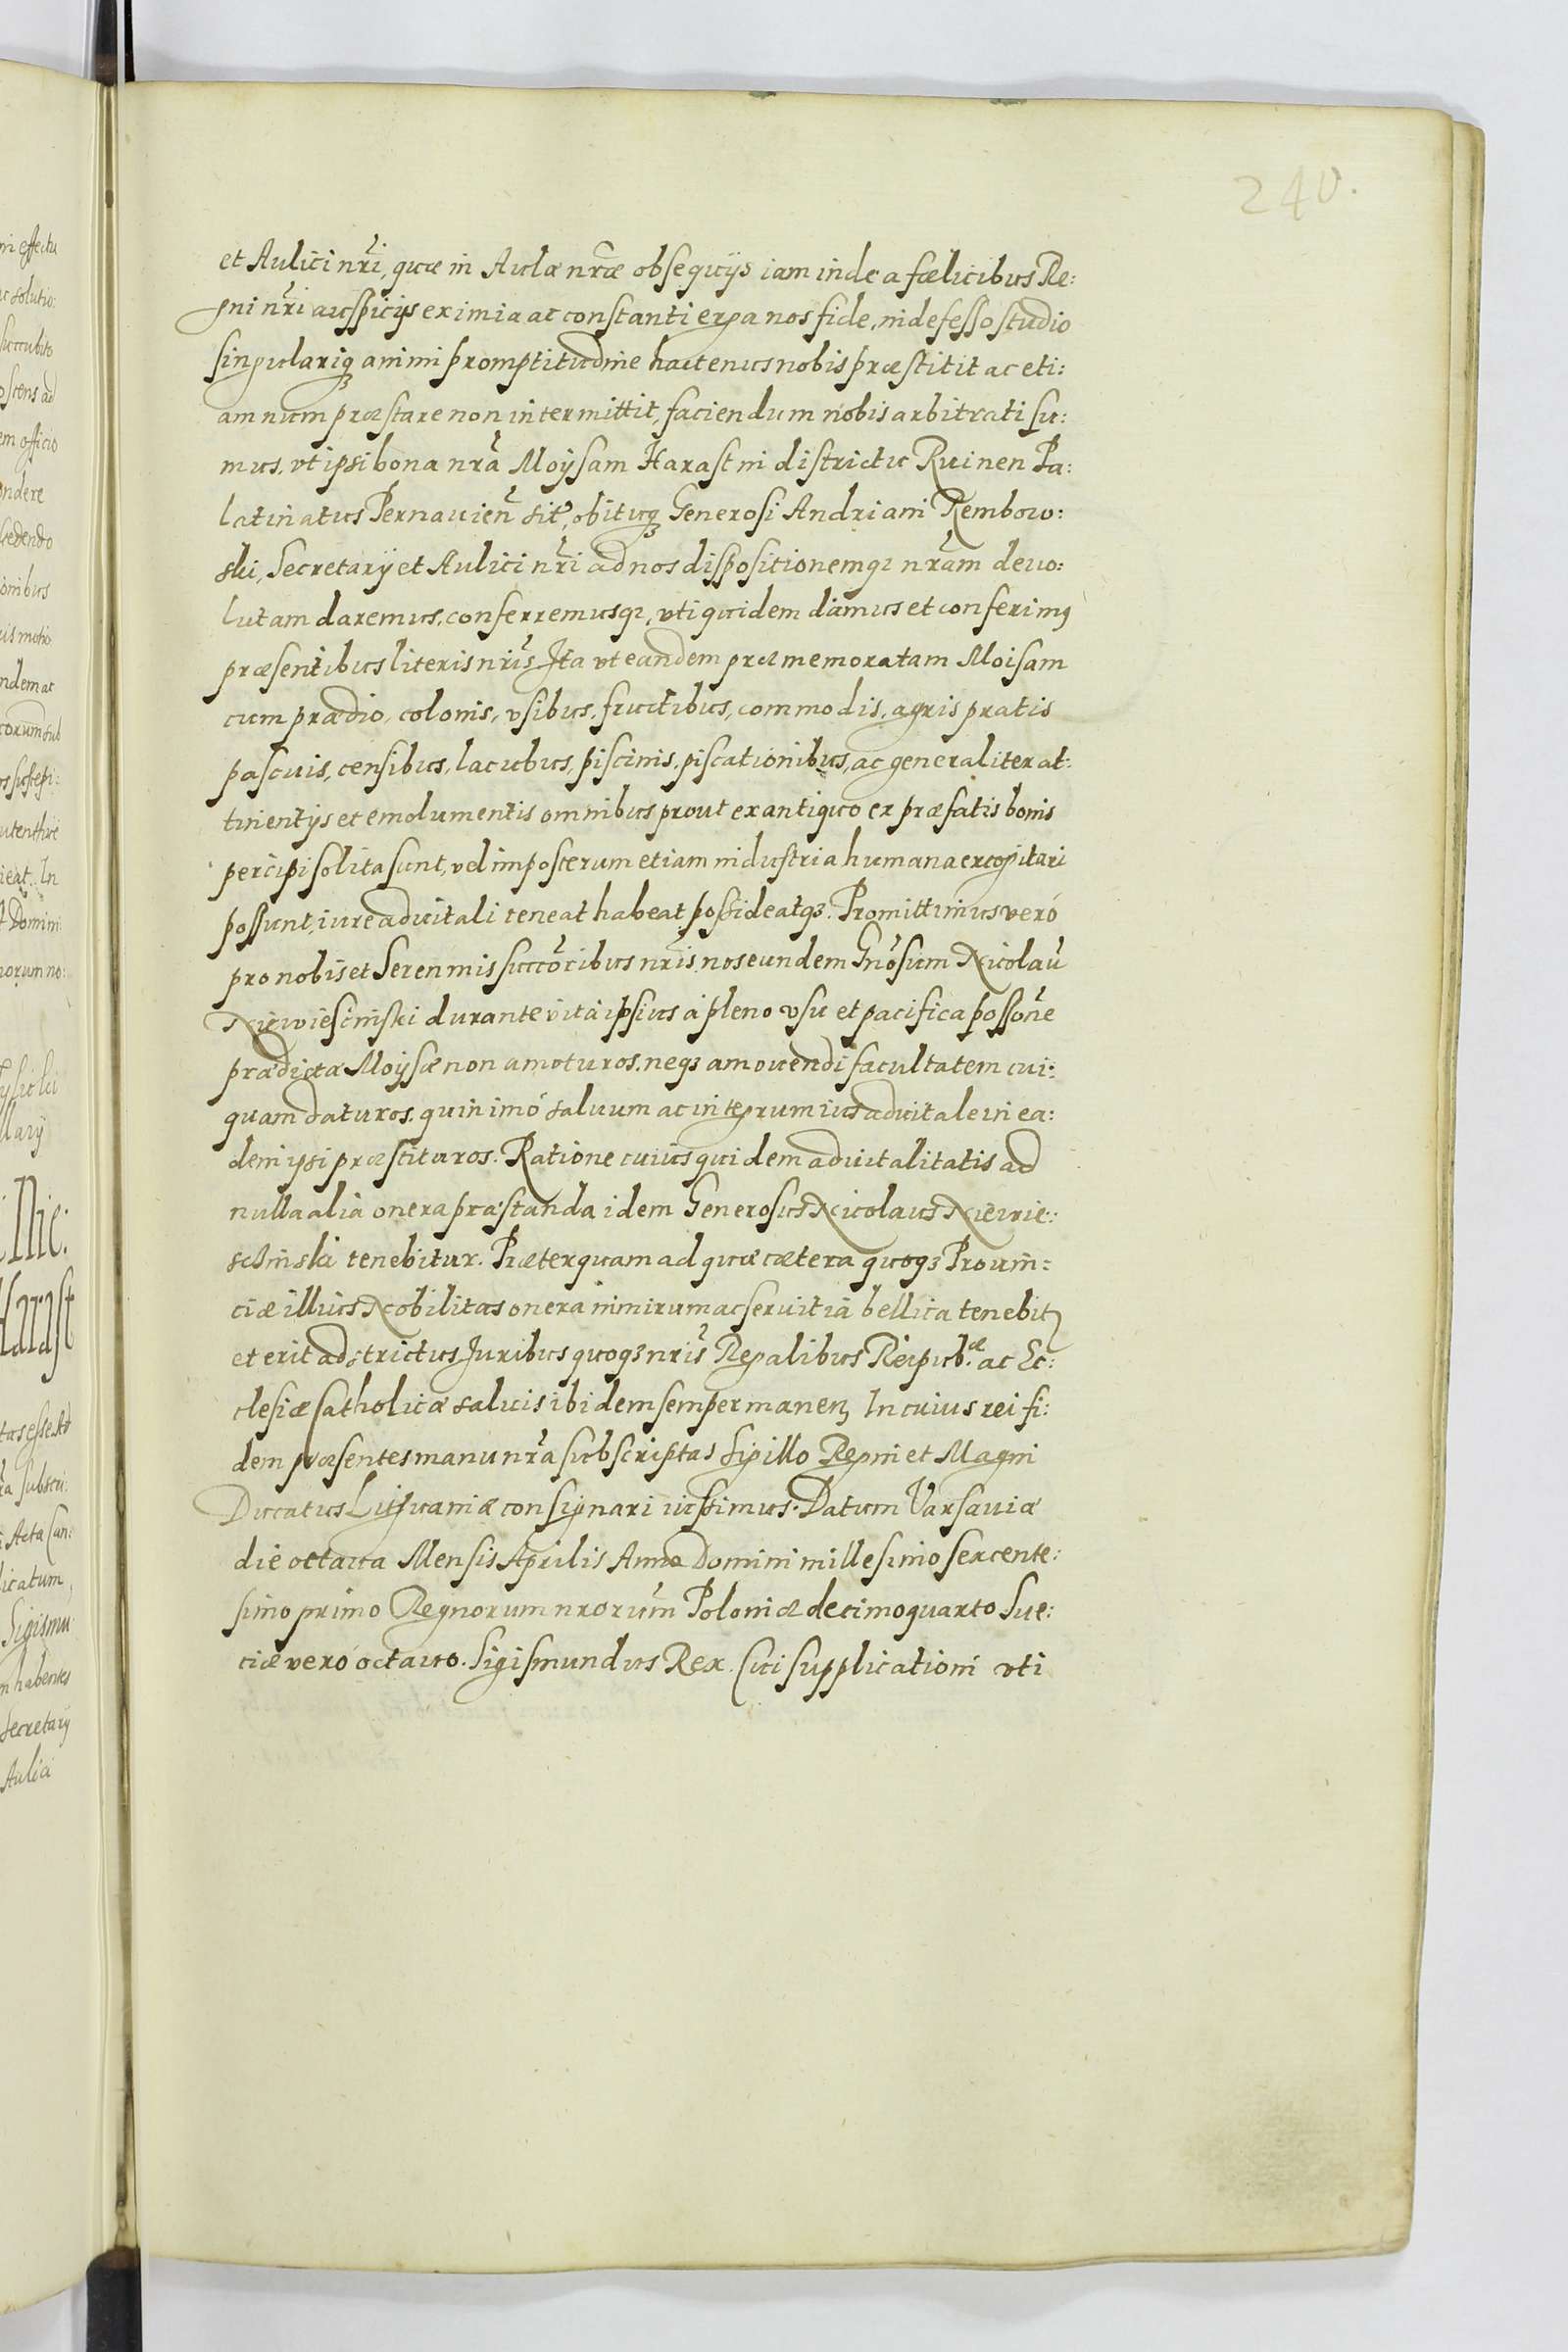 240.
et Aulici nr̃i, quæ in Aulæ nr̃æ obsequijs iam inde a fælicibus Re:
gni nr̃i auspicijs eximia ac constanti erga nos fide, indefesso studio
singulariq̃ animi promptitudine hactenus nobis præstitit ac eti:
am num præstare non intermittit, faciendum nobis arbitrati su:
mus, vt ipsi bona nr̃a Moysam Harast in districtu Ruinen Pa:
latinatus Pernauieñ sit̃, obituq̃ Generosi Andriani Rembow:
ski, Secretarij et Aulici nr̃i ad nos dispositionemq̃ nr̃am deuo:
lutam daremus, conferremusq̃, vti quidem damus et conferimꝰ
præsentibus literis nr̃is Ita vt eandem præmemoratam Moisam
cum prædio, colonis, vsibus, fructibus, commodis, agris pratis
pascuis, censibus, lacubus, piscinis, piscationibus, ac generaliter at:
tinentijs et emolumentis omnibus prout ex antiquo ex præfatis bonis
percipi solita sunt, vel imposterum etiam industria humana excogitari
possunt, iure aduitali teneat habeat possideatq̃. Promittimus veró
pro nobis et Serenmis succõribus nr̃is nos eundem Gñosum Nicolaũ
Niewiesciński durante vitá ipsius á pleno vsu et pacifica possõne
prædictæ Moysæ non amoturos, neq̃ amouendi facultatem cui:
quam daturos, quin imó saluum ac integrum ius aduitale in ea:
dem ipsi præstituros. Ratione cuius quidem aduitalitatis ad
nulla alia onera præstanda idem Generosus Nicolaus Niewie:
scinski tenebitur. Præterquam ad quæ cætera quoq̃ Prouin:
ciæ illius Nobilitas onera nimirum ac seruitia bellica tenebitꝛ
et erit adstrictus Juribus quoq̃ nr̃is Regalibus Reipub.æ ac Ec:
clesiæ Catholicæ saluis ibidem semper manenꝫ In cuius rei fi:
dem præsentes manu nr̃a subscriptas Sigillo Regni et Magni
Ducatus Lituaniæ consignari iussimus. Datum Varsauiæ
die octaua Mensis Aprilis Anno Domini millesimo sexcente:
simo primo Regnorum nrorũm Poloniæ decimoquarto Sue:
ciæ veró octauo. Sigismundus Rex. Cui supplicationi vti